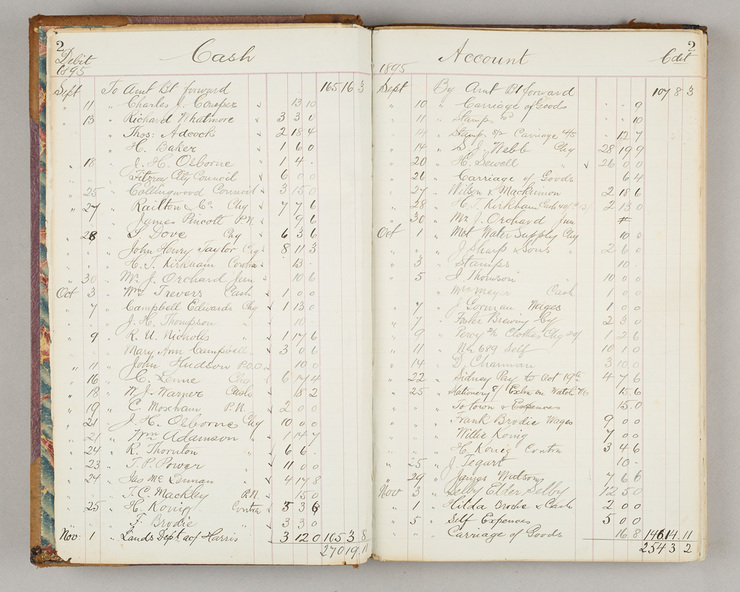 2
Debit Cash
1895
Sept To Amt Bt forward 165 16 3
11 " Charles J. Cowper 13 10
13 " Richard Whatmore 3 3 0
" Thos. Adcock 2 18 4
" H. Baker 1 6 0
18 " H. Osborne 1 4 -
" City Council 6 0 0
25 " Collingwood Council 3 15 0
27 " Railton & Co. Chq 7 7 6
" James Pincott P.N. 9 6
28 " J. Dove Chq 6 3 6
" John Henry Taylor Chq 8 11 3
" H. J. Kirkham Contra 13
30 " Mr J. Orchard Jun 10 6
Oct 3 " Wm Trevers Cash 1 0 0
7 " Campbell Edwards Chq 1 13 0
" J. H. Thompson 10
9 " R. U. Nicholls 1 17 6
" Mary Ann 3 0 6
11 " John Hudson P.O.O. 10 0
16 " C. Lenne 6 17 4
18 " W. J. Warner Cash 5 2
19 " C. Moscham P.N. 2 0 0
21 " J. H. Osborne Chq 10 0 0
21 " Wm Adamson 1 14 7
24 " R. Thornton 6 6
23 " T. P. Power 11 0 0
24 " Jas McLennan 4 17 8
" T. C. Mackley P.N. 15 0
25 " H. Konig Contra 3 3 6
" F. Brodie 3 3 0
Nov 1 " Lands Dept a/c Harris 3 12 0 165 3 8
270 19 11
2
1895 Account Cdit
Sept By Amt Bt forward 107 8 3
10 " Carriage of Goods 9
11 " Stamps 10
14 " Carriage 12 7
14 " S. J. Webb Chq 28 19 9
20 " H. Sewell 26 0 0
26 " Carriage of Goods 6 4
27 " Wilson & Mackinnon 2 18 6
28 " H. J. Kirkham 2 13 0
30 " Mr J. Orchard Jun
Oct 1 " Met Water Supply Chq 10 0
" J. Sharp & Sons 2 6 0
3 " Stamps 10
5 " J. Thomson 10 0
" Cash 1 0 0
7 " J. Gorman Wages 1 0 0
7 " Foster Brewing Cy 2 3 0
9 " Clothes 1 2 6
11 " No 619 Self 10 1 0
14 " D. Chapman 3 10 0
22 " Sidney Pay to Oct 19th 4 7 6
25 " Stationery 15 6
" To town & Expences 15 0
" Frank Brodie Wages 9 0 0
" Willie Konig 7 0 0
" H. Konig Contra 3 4 6
25 " J. Tegart 10 -
29 " James Watson 7 6 6
Nov 3 " Selby Elder Selby 12 5 0
1 " Hilda Brooke Cash 2 0 0
5 " Self Expences 5 0 0
" Carriage of Goods 16 8 146 14 11
254 3 2